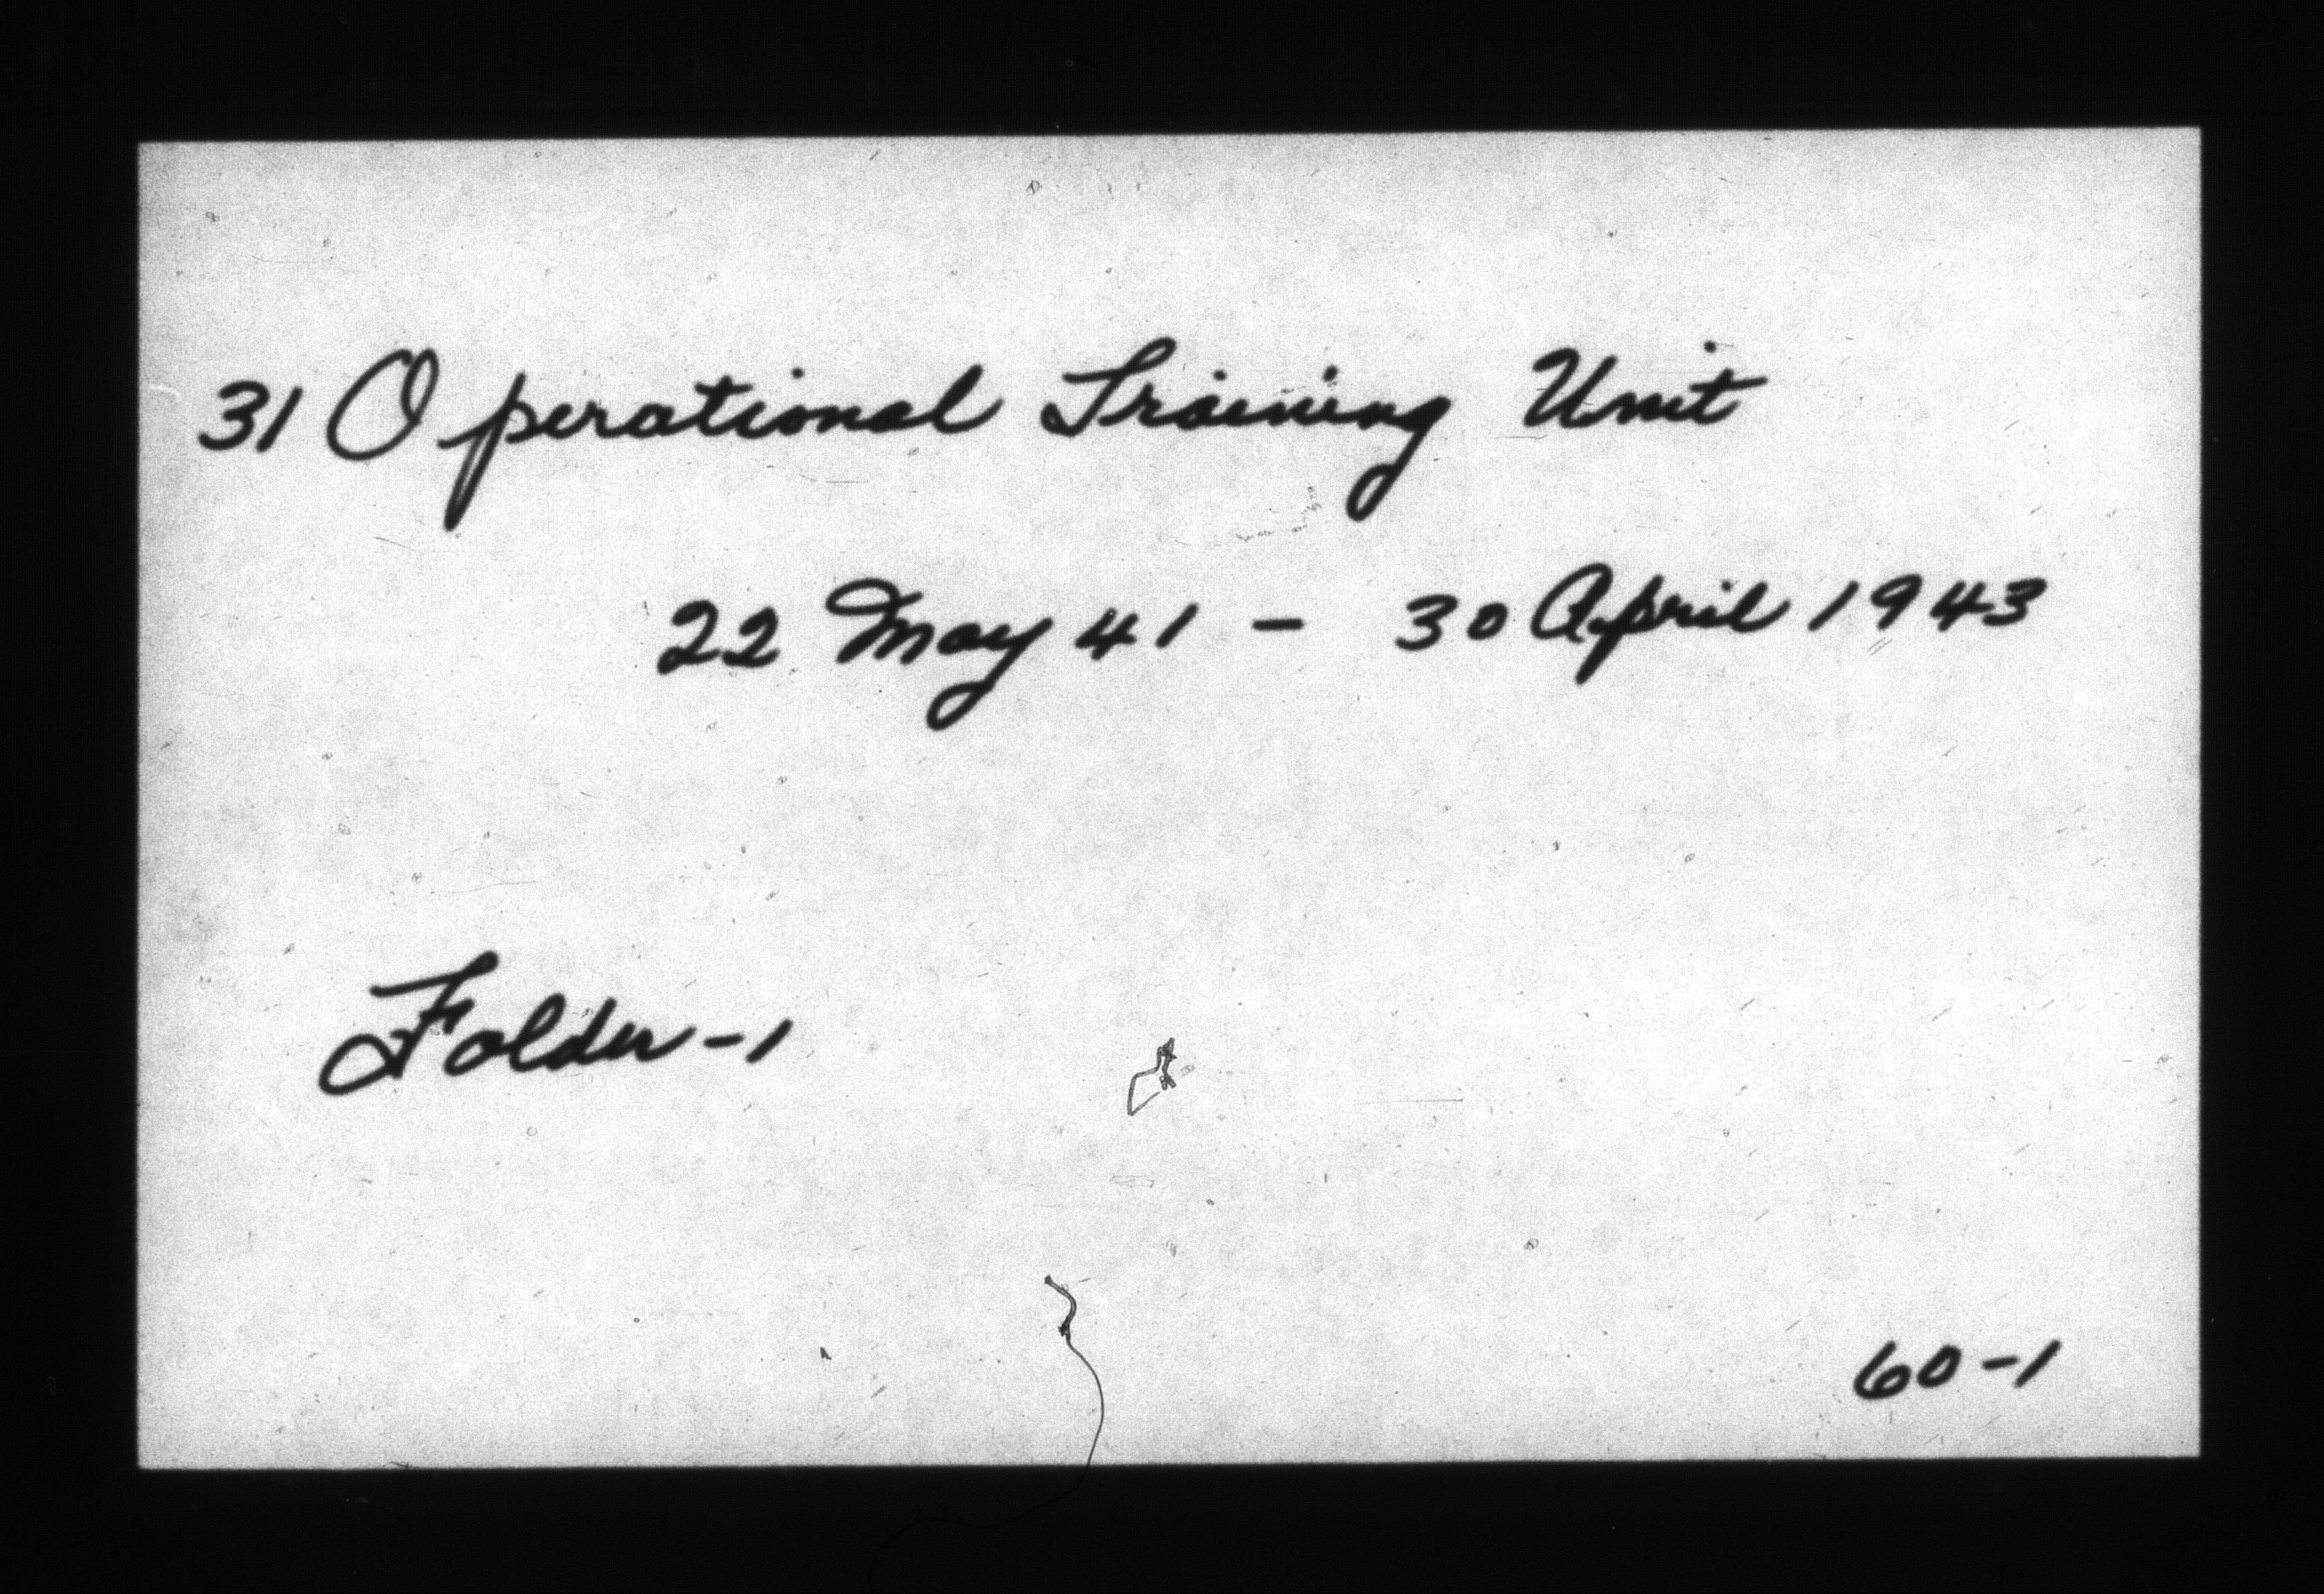 31 Operational Training Unit
22 May 41 - 30 April 1943
Folder-1
60-1